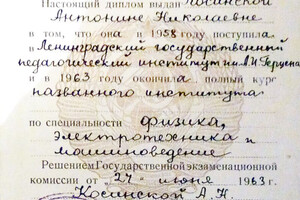 Настоящий диплом выдан Косинской
Антонине Николаевне
в том, что она в 1958 году поступила
в Ленинградский государственный
педагогический институт им. А. И. Герцена
и в 1963 году окончила полный курс
названного института
по специальности физика,
электротехника и
машиноведение
Решением Государственной экзаменационной
комиссии от „27“ июня 1963 г.
Косинской А. Н.